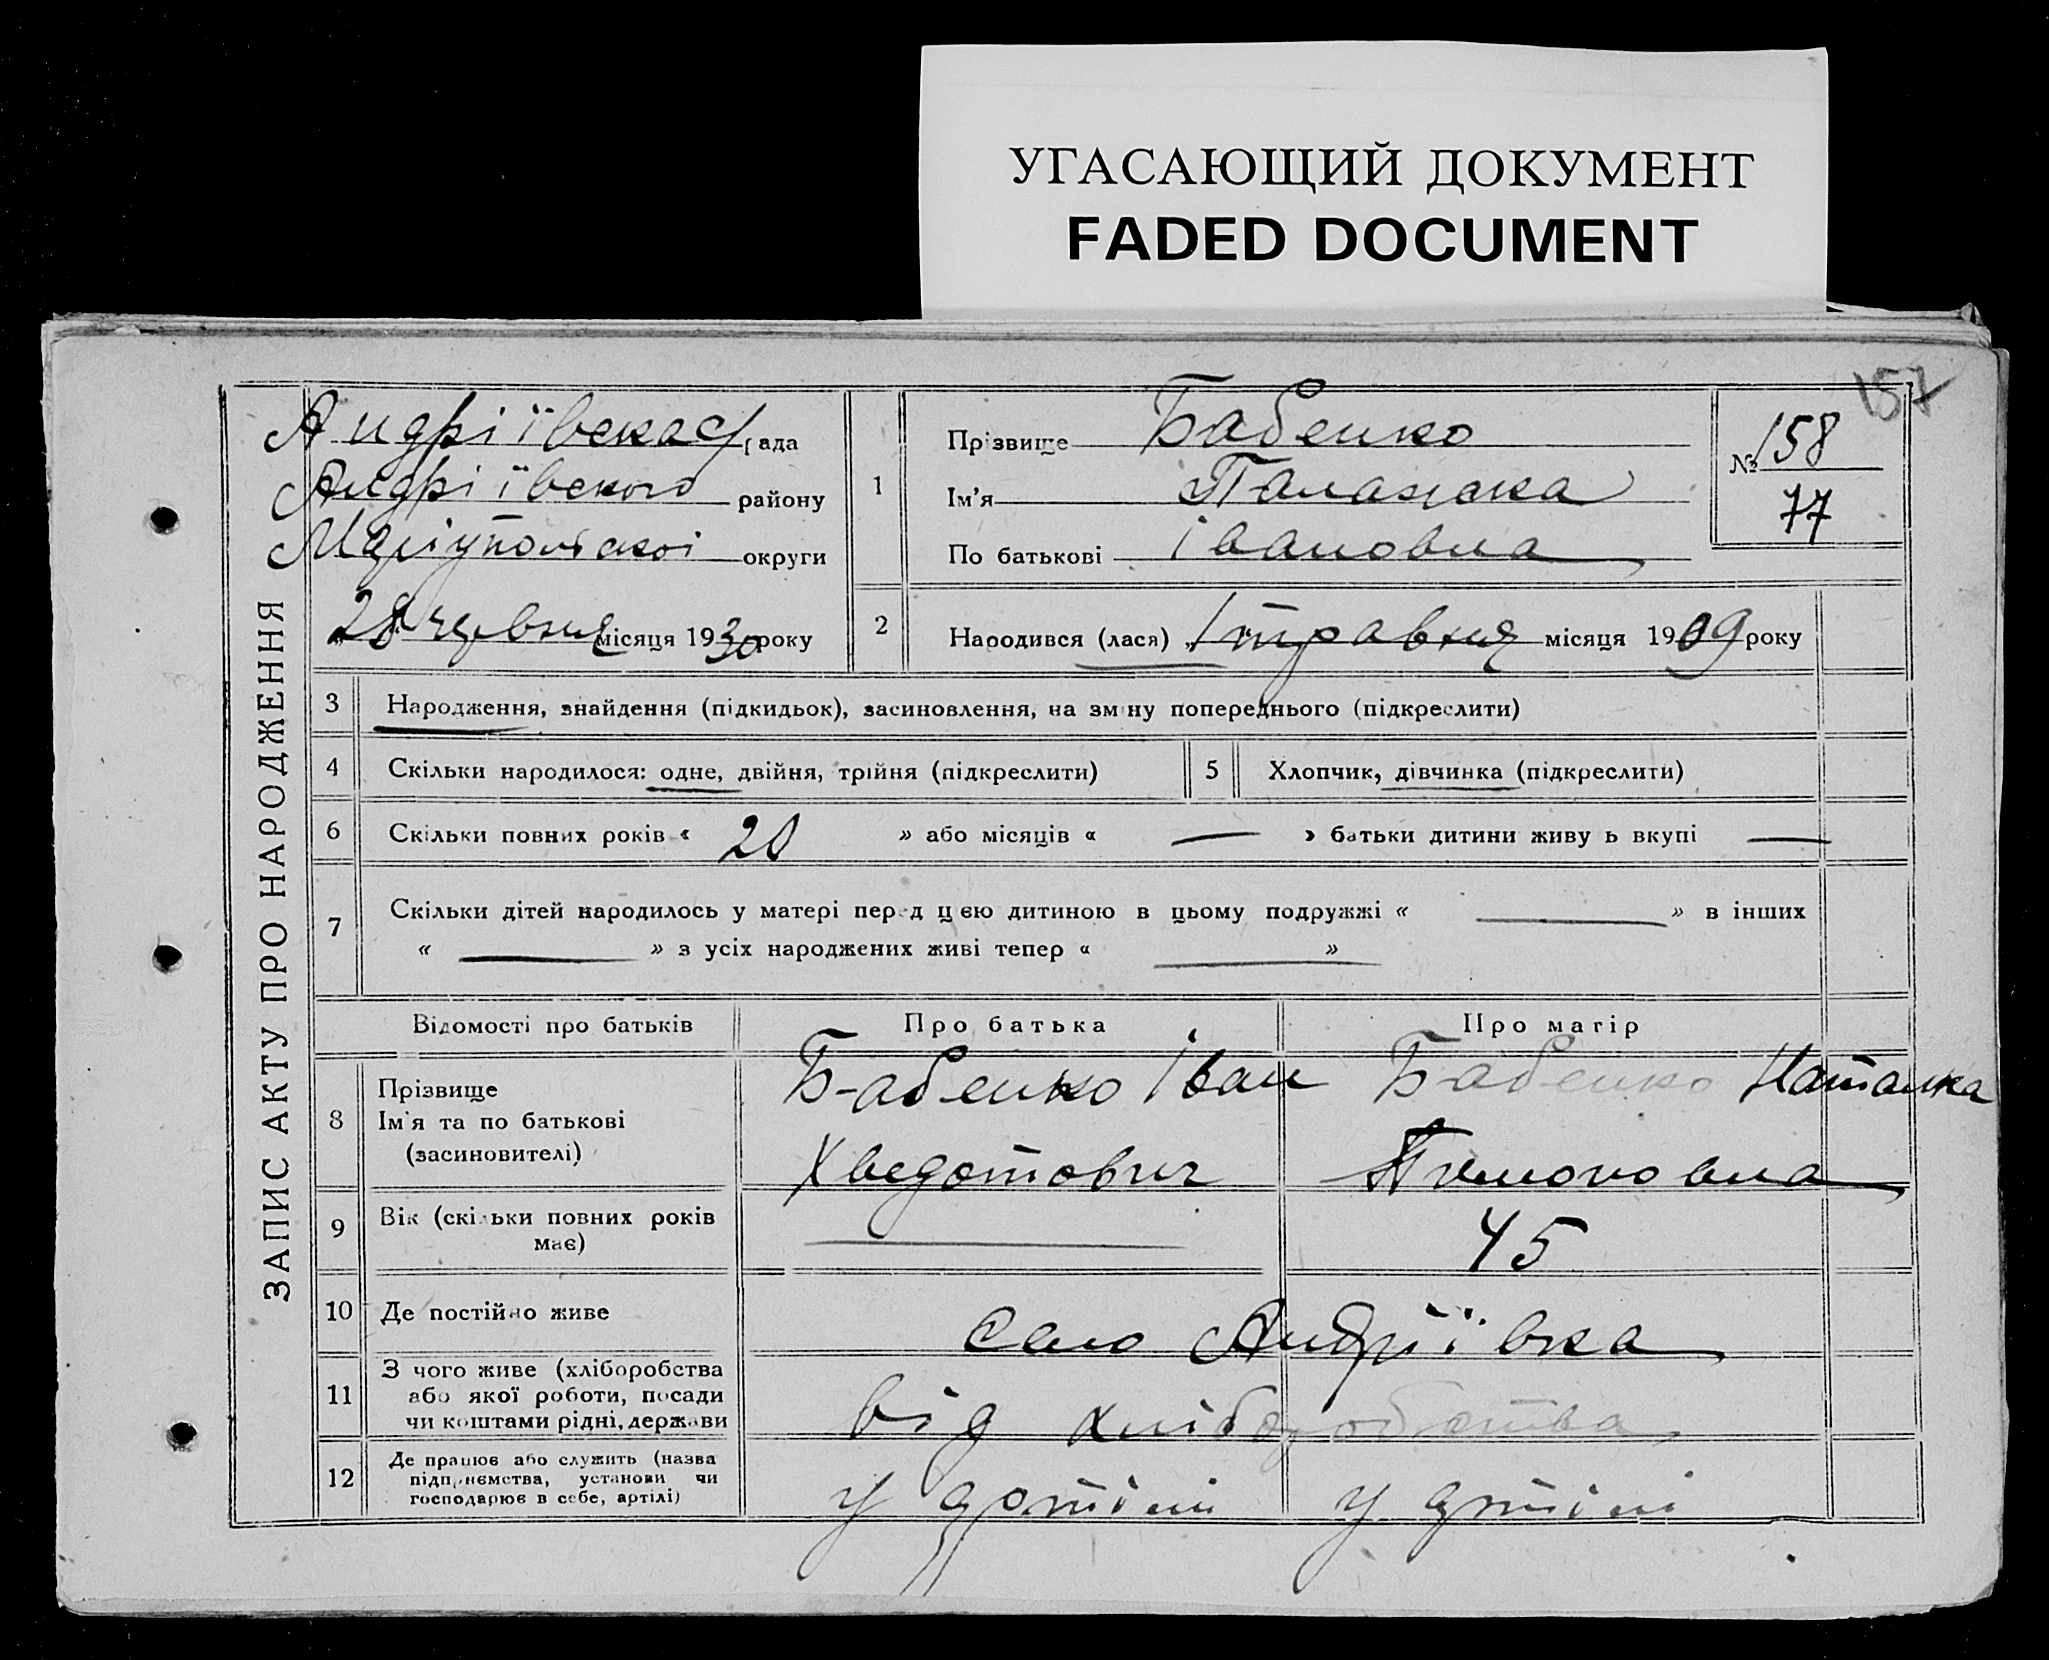 УГАСАЮЩИЙ ДОКУМЕНТ
FADED DOCUMENT
157
ЗАПИС АКТУ ПРО НАРОДЖЕННЯ
Андріївська с/рада
Андріївського району
Маріупольскої округи
28 червня місяця 1930 року
1
Прізвище Бабенко
Ім'я Палажка
По батькові Івановна
№ 158
77
2 Народився (лася) 1 травня місяця 1909 року
3 Народження, знайдення (підкидьок), засиновлення, на зміну попереднього (підкреслити)
4 Скільки народилося: одне, двійня, трійня (підкреслити)
5 Хлопчик, дівчинка (підкреслити)
6 Скільки повних років « 20 » або місяців « — » батьки дитини живуть вкупі —
7 Скільки дітей народилось у матері перед цією дитиною в цьому подружжі « — » в інших
« — » з усіх народжених живі тепер « — »
Відомості про батьків Про батька Про матір
8 Прізвище
Ім'я та по батькові
(засиновителі)
Бабенко Іван
Хведотович
Бабенко Наталка
9 Вік (скільки повних років
має)
— 45
10 Де постійно живе село Андріївка
11 З чого живе (хліборобства
або якої роботи, посади
чи коштами рідні, держави
від хліборобства
12 Де працює або служить (назва
підприємства, установи чи
господарює в себе, артілі)
у артілі у артілі